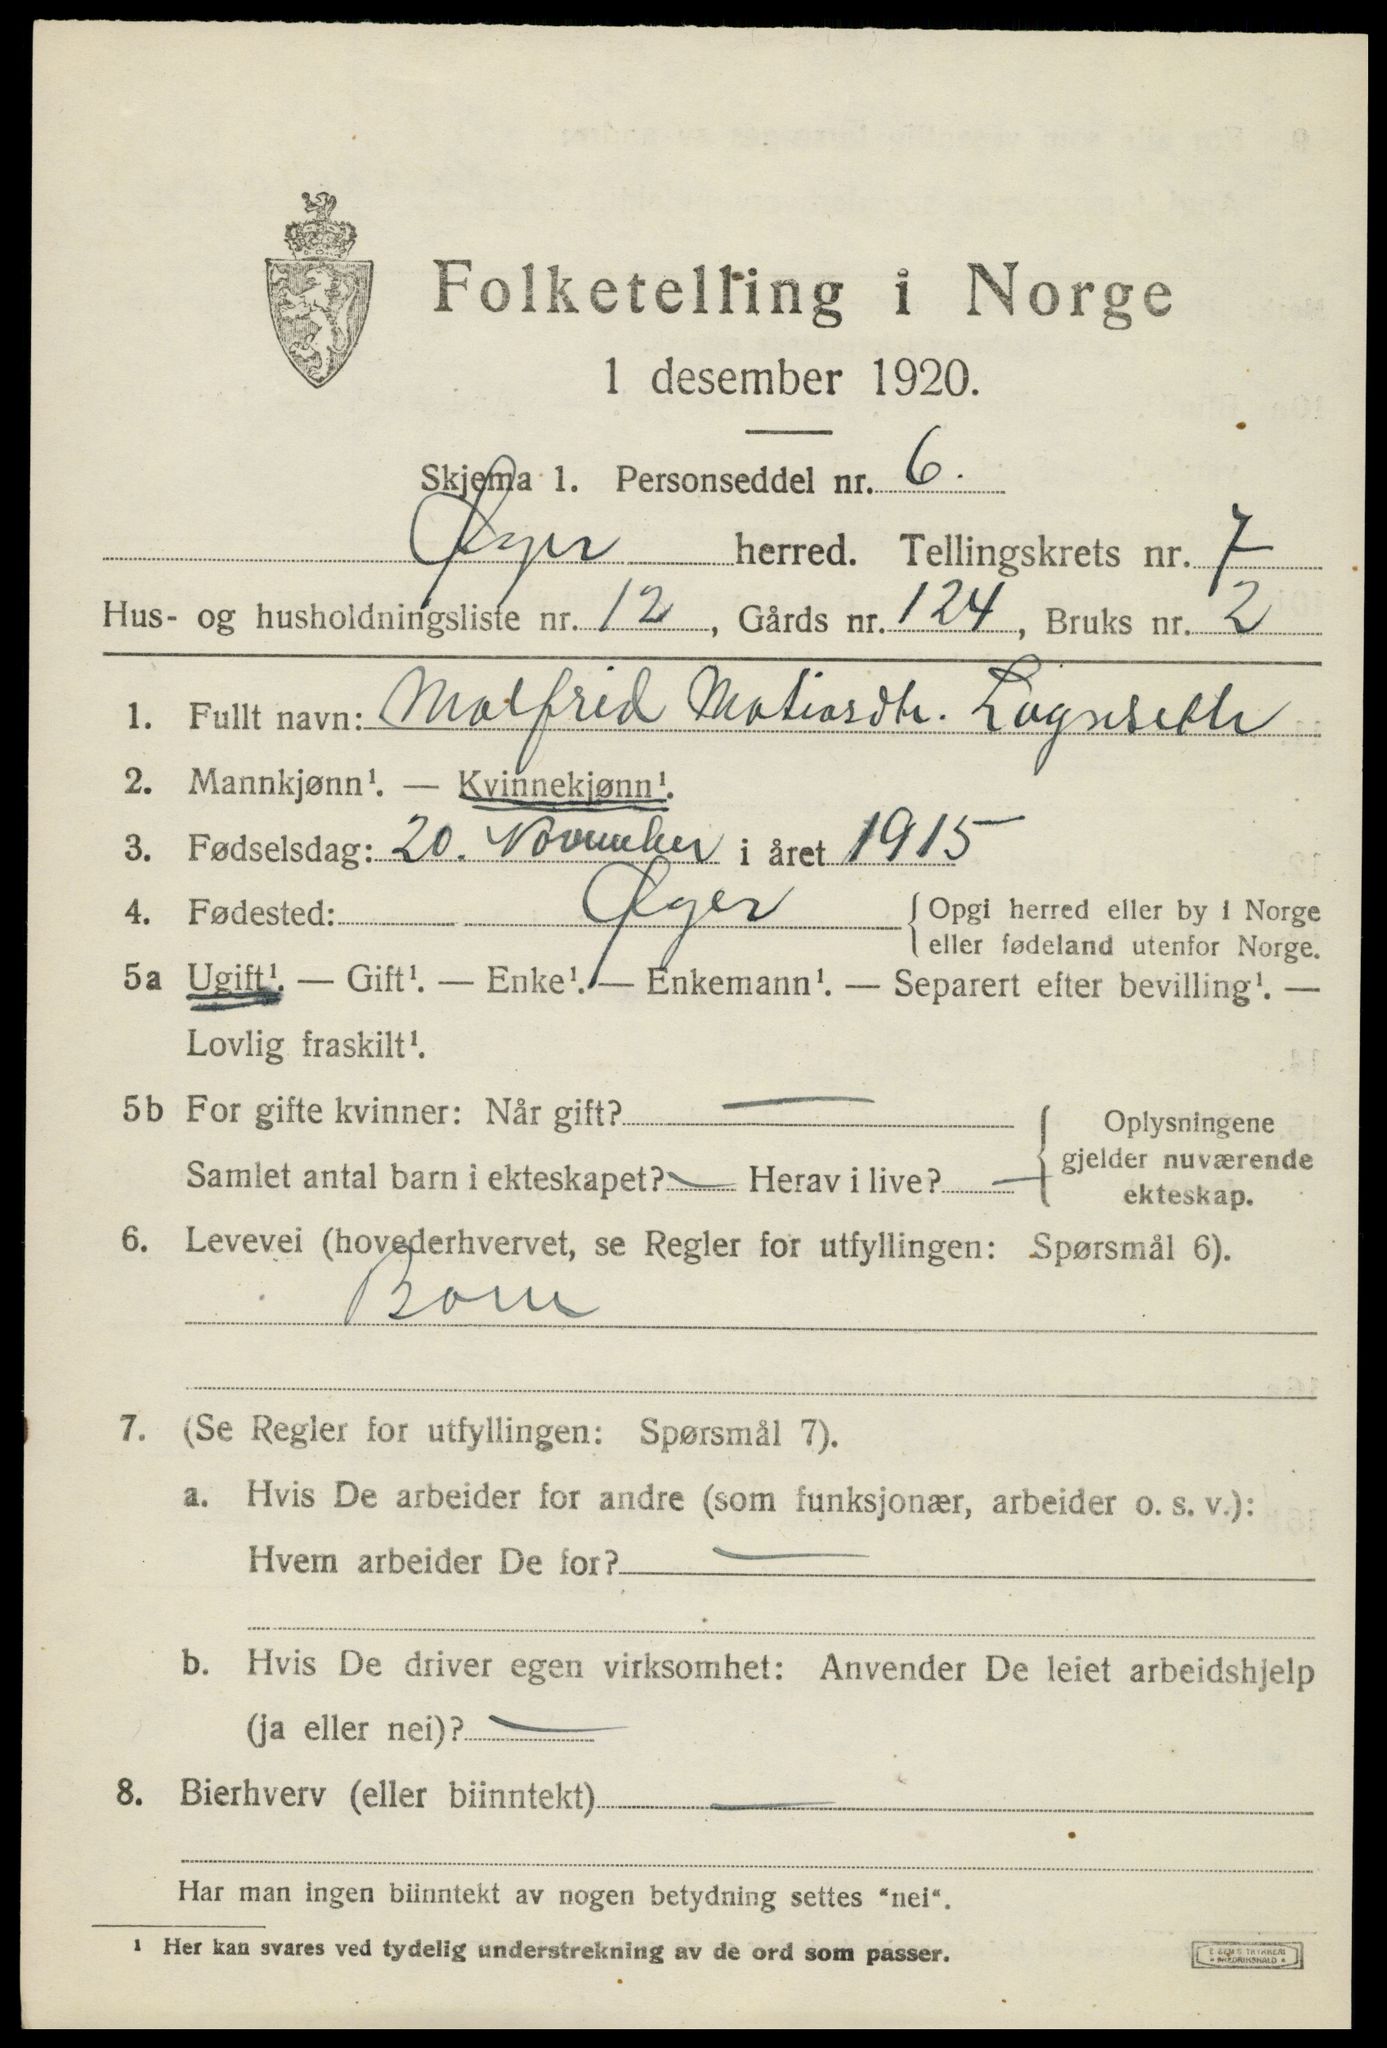 Folketelling i Norge
1 desember 1920.
Skjema 1. Personseddel nr. 6.
Øyer herred. Tellingskrets nr. 7
Hus- og husholdningsliste nr. 12, Gårds nr. 124, Bruks nr. 2
1. Fullt navn: Malfrid Matiasdtr.
2. Mannkjønn¹. — Kvinnekjønn¹.
3. Fødselsdag: 20. November i året 1915
4. Fødested: Øyer {Opgi herred eller by i Norge
eller fødeland utenfor Norge.
5a Ugift¹. — Gift¹. — Enke¹. — Enkemann¹. — Separert efter bevilling¹. —
Lovlig fraskilt¹.
5b For gifte kvinner: Når gift? —
Samlet antal barn i ekteskapet? — Herav i live? —
{Oplysningene
gjelder nuværende
ekteskap.
6. Levevei (hovederhvervet, se Regler for utfyllingen: Spørsmål 6).
Barn
7. (Se Regler for utfyllingen: Spørsmål 7).
a. Hvis De arbeider for andre (som funksjonær, arbeider o. s. v.):
Hvem arbeider De for? —
b. Hvis De driver egen virksomhet: Anvender De leiet arbeidshjelp
(ja eller nei)? —
8. Bierhverv (eller biinntekt) —
Har man ingen biinntekt av nogen betydning settes "nei".
¹ Her kan svares ved tydelig understrekning av de ord som passer.